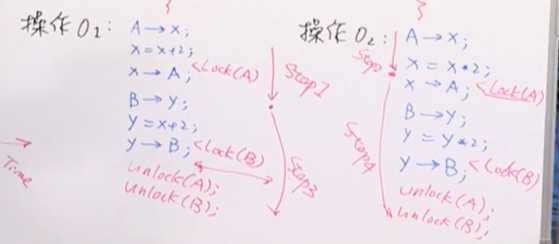 操作O₁:
A→x;
x=x+2;
x→A; <Lock(A)
B→Y;
Y=x+2;
Y→B; <Lock(B)
unlock(A);
unlock(B);
Time
Step1
Step3
操作O₂:
A→x;
x=x*2;
x→A; <Lock(A)
B→Y;
Y=Y*2;
Y→B; <Lock(B)
unlock(A);
unlock(B);
Step2
Step4